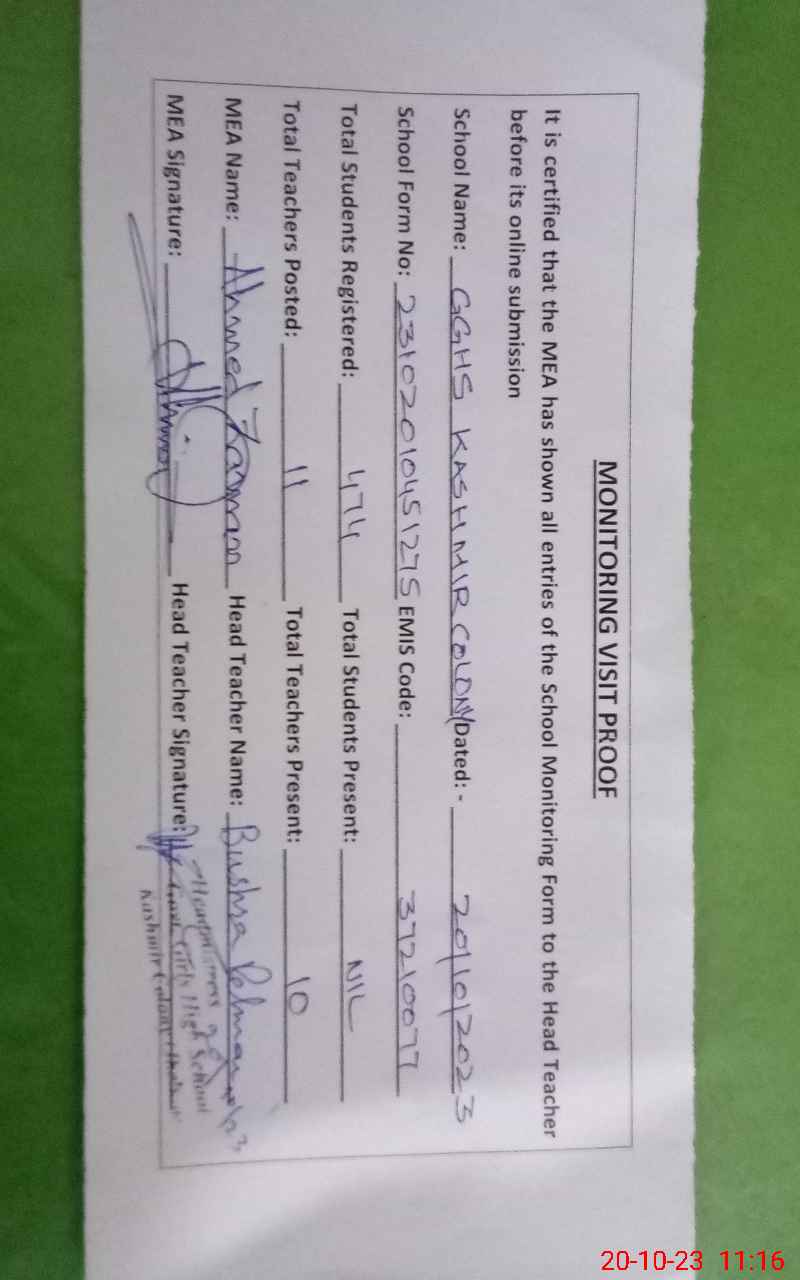 MONITORING VISIT PROOF
It is certified that the MEA has shown all entries of the School Monitoring Form to the Head Teacher
before its online submission
School Name: GGHS KASHMIR COLONY Dated: - 20/10/2023
School Form No: 23102010451275 EMIS Code: 37210077
Total Students Registered: 474 Total Students Present: NIL
Total Teachers Posted: 11 Total Teachers Present: 10
MEA Name: Ahmed Head Teacher Name: Bushra
MEA Signature: Head Teacher Signature:
Girls High School
Kashmir Colony
20-10-23 11:16